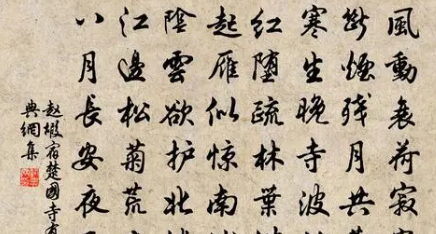 風動衰荷寂寞
斷煙殘月共
寒生晚寺波
紅墮疏林葉
起雁似驚南
陰雲欲护北
江邊松菊荒
八月長安夜
趙嘏宿楚國寺有
典網集